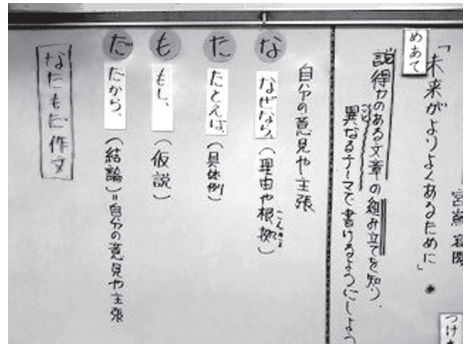 「未来がよりよくあるために」
めあて
説得力のある文章の組み立てを知り、
異なるテーマで書けるようにしよう
自分の意見や主張
な なぜなら、(理由や根拠)
こんきょ
た たとえば、(具体例)
も もし、(仮説)
だ だから、(結論)=自分の意見や主張
なたもだ作文
つけ